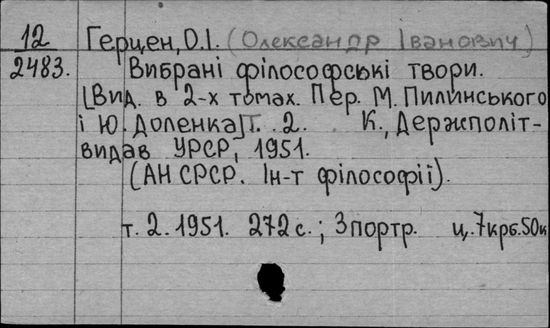 12 Герцен, О.І. (Олександр Іванович)
2483. Вибрані філософські твори.
[Вид. в 2-х томах. Пер. М. Пилинського
і Ю. Доленка] Т. 2. К., Держполіт-
видав УРСР, 1951.
(АН СРСР. Ін-т філософії).
т. 2. 1951. 272 с.; 3 портр. ц. 7 крб. 50 к